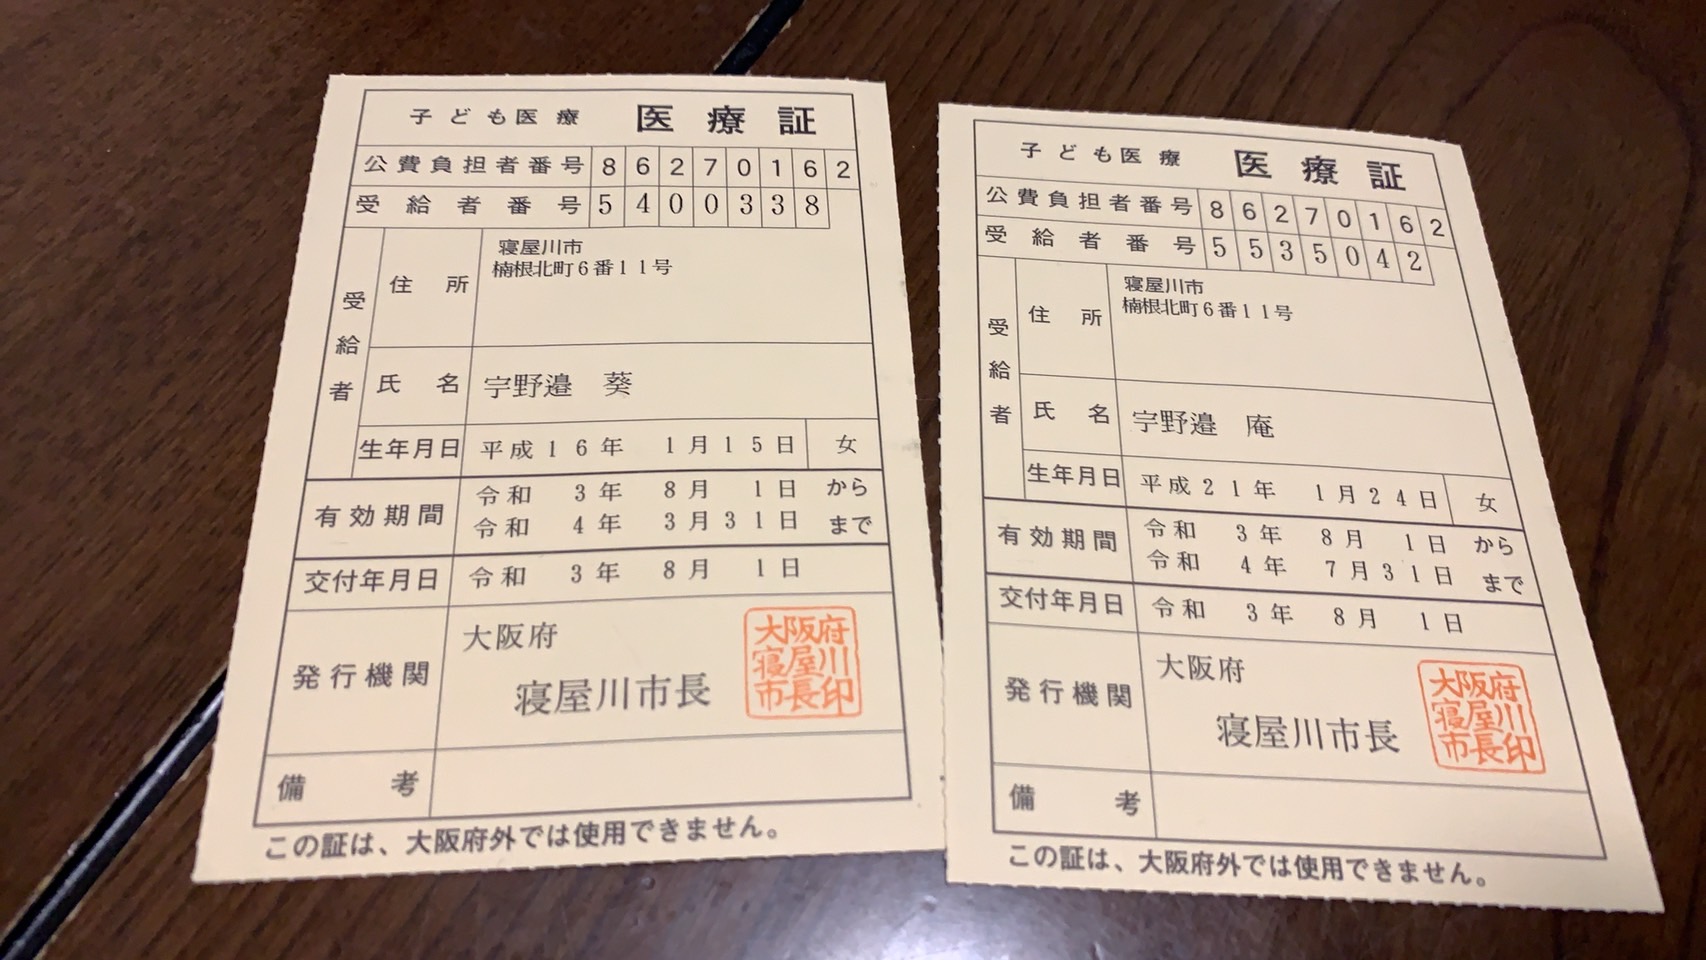 子ども医療 医療証
公費負担者番号 8 6 2 7 0 1 6 2
受給者番号 5 4 0 0 3 3 8
受給者
住所
寝屋川市
楠根北町6番11号
氏名 宇野邉 葵
生年月日 平成16年 1月15日 女
有効期間
令和 3年 8月 1日 から
令和 4年 3月31日 まで
交付年月日 令和 3年 8月 1日
発行機関
大阪府
寝屋川市長
大阪府
寝屋川
市長印
備考
この証は、大阪府外では使用できません。
子ども医療 医療証
公費負担者番号 8 6 2 7 0 1 6 2
受給者番号 5 5 3 5 0 4 2
受給者
住所
寝屋川市
楠根北町6番11号
氏名 宇野邉 庵
生年月日 平成21年 1月24日 女
有効期間
令和 3年 8月 1日 から
令和 4年 7月31日 まで
交付年月日 令和 3年 8月 1日
発行機関
大阪府
寝屋川市長
大阪府
寝屋川
市長印
備考
この証は、大阪府外では使用できません。